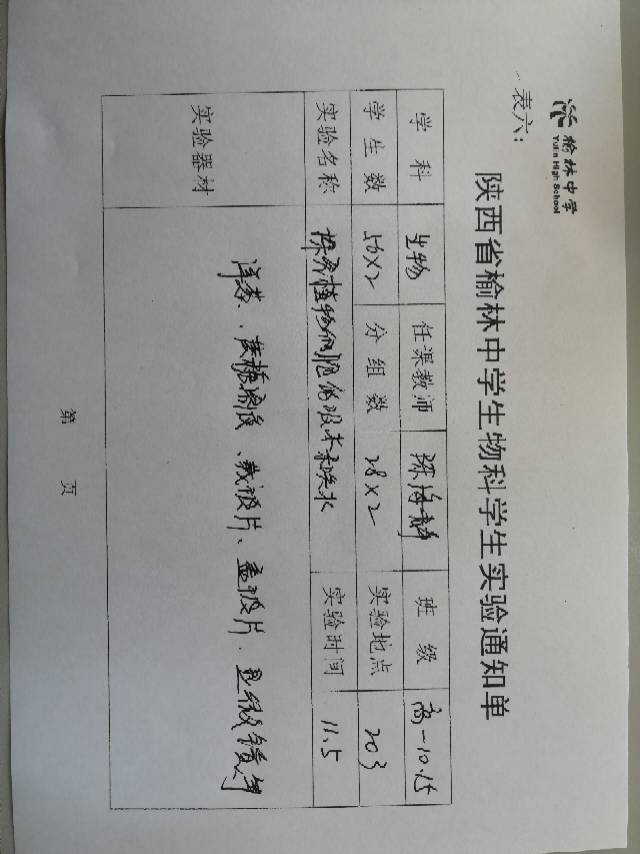 榆林中学
Yulin High School
表六:
陕西省榆林中学生物科学生实验通知单
学科 生物 任课教师 班级 高一10.15
学生数 56×2 分组数 28×2 实验地点 203
实验名称 探究植物细胞的吸水和失水 实验时间 11.5
实验器材 洋葱、蔗糖溶液、载玻片、盖玻片、显微镜等
第 页